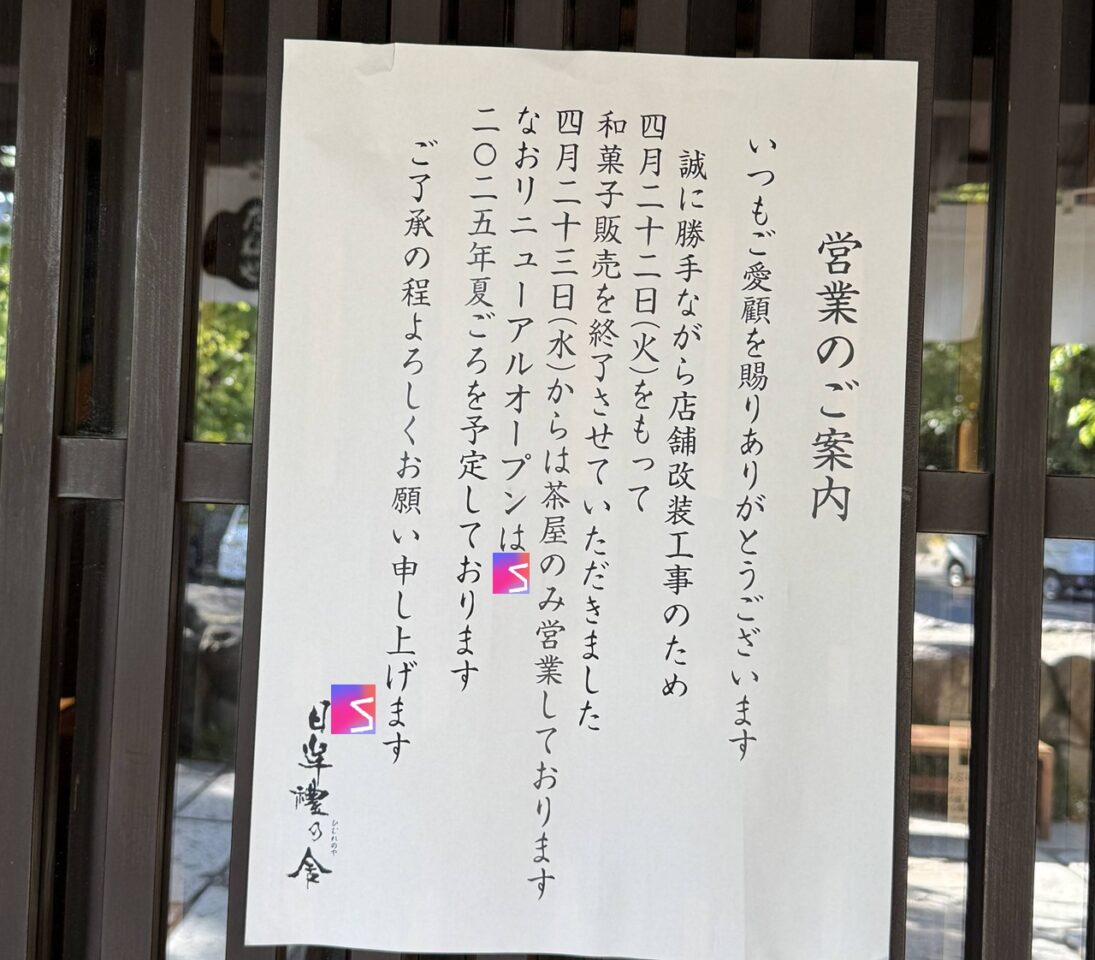 営業のご案内
いつもご愛顧を賜りありがとうございます
誠に勝手ながら店舗改装工事のため
四月二十二日(火)をもって
和菓子販売を終了させていただきました
四月二十三日(水)からは茶屋のみ営業しております
なおリニューアルオープンは
二〇二五年夏ごろを予定しております
ご了承の程よろしくお願い申し上げます
日牟禮乃舎
ひむれのや